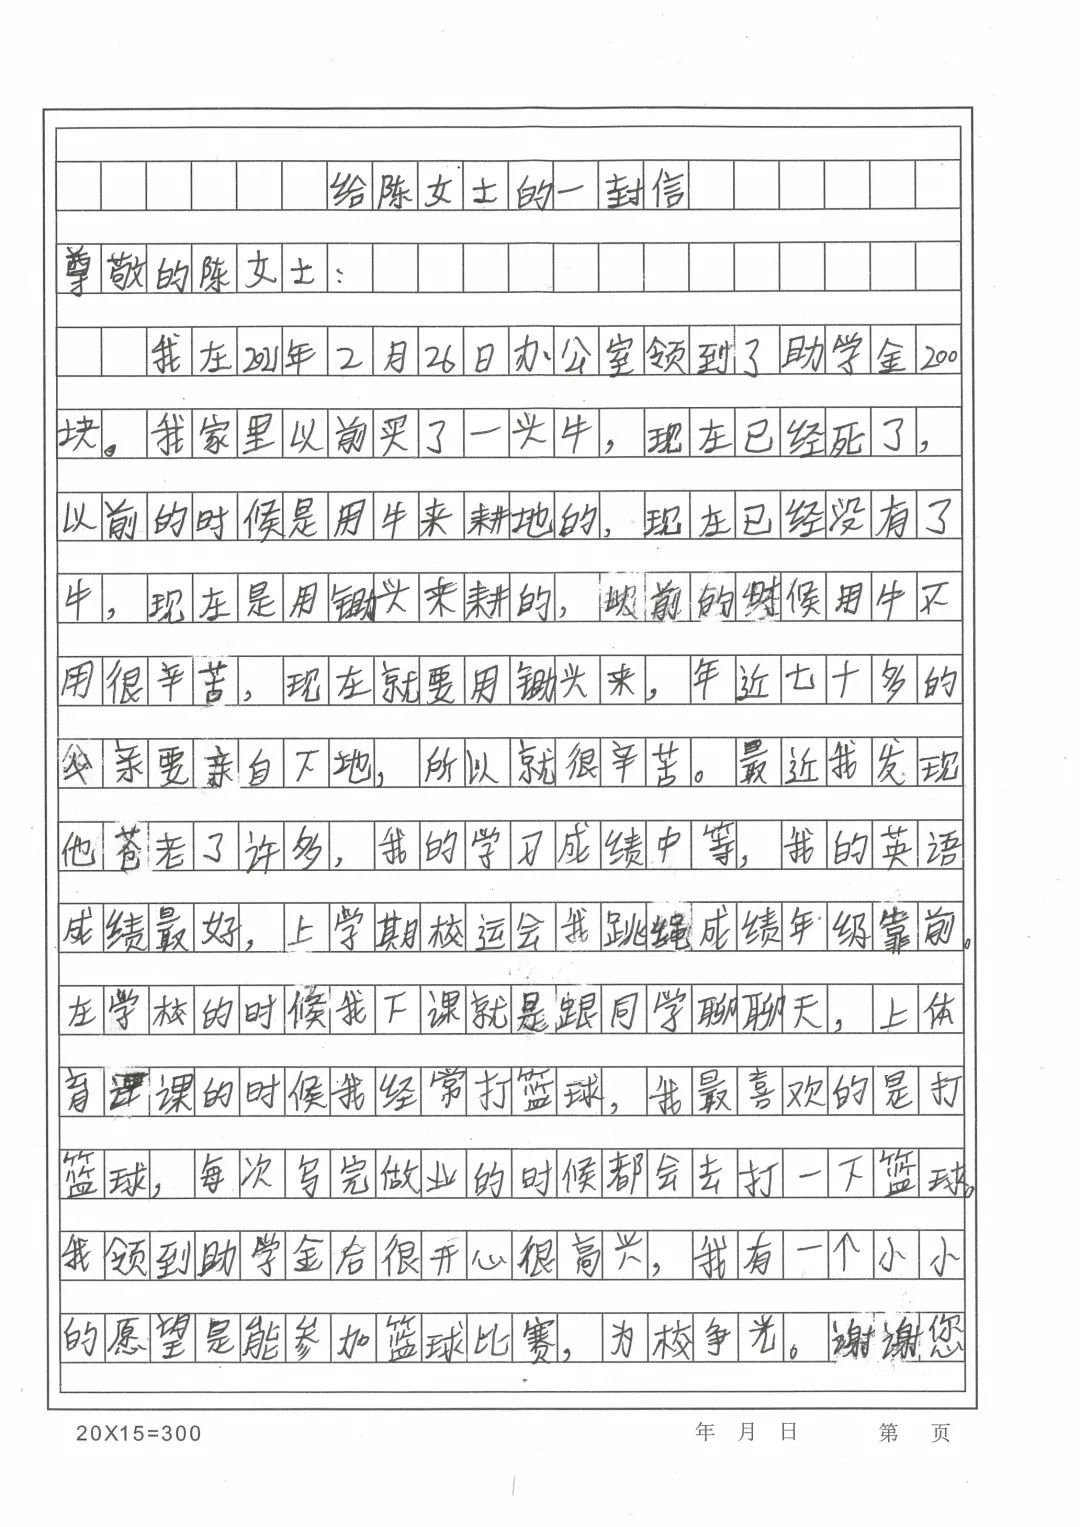 给陈女士的一封信
尊敬的陈女士：
我在2021年2月26日办公室领到了助学金200
块。我家里以前买了一头牛，现在已经死了，
以前的时候是用牛来耕地的，现在已经没有了
牛，现在是用锄头来耕的，以前的时候用牛不
用很辛苦，现在就要用锄头来，年近七十多的
父亲要亲自下地，所以就很辛苦。最近我发现
他苍老了许多，我的学习成绩中等，我的英语
成绩最好，上学期校运会我跳绳成绩年级靠前。
在学校的时候我下课就是跟同学聊聊天，上体
育课的时候我经常打篮球，我最喜欢的是打
篮球，每次写完做业的时候都会去打一下篮球。
我领到助学金后很开心很高兴，我有一个小小
的愿望是能参加篮球比赛，为校争光。谢谢您
20X15=300 年 月 日 第 页